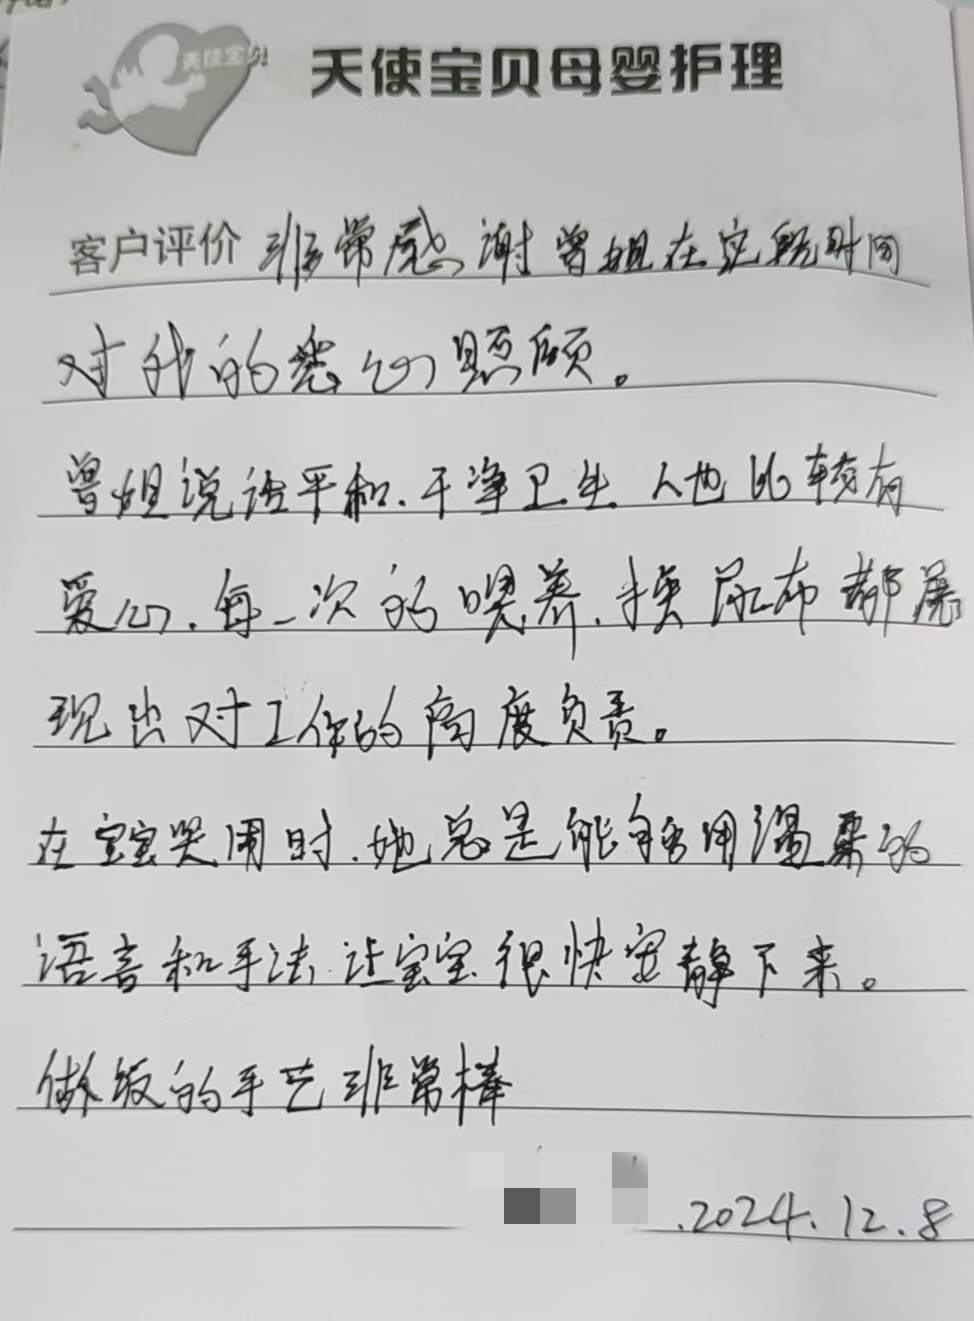 天使宝贝
天使宝贝母婴护理
客户评价 非常感谢曾姐在这段时间
对我的悉心照顾。
曾姐说话平和.干净卫生 人也比较有
爱心.每一次的喂养.换尿布都展
现出对工作的高度负责。
在宝宝哭闹时.她总是能够用温柔的
语言和手法.让宝宝很快安静下来。
做饭的手艺非常棒
.2024.12.8